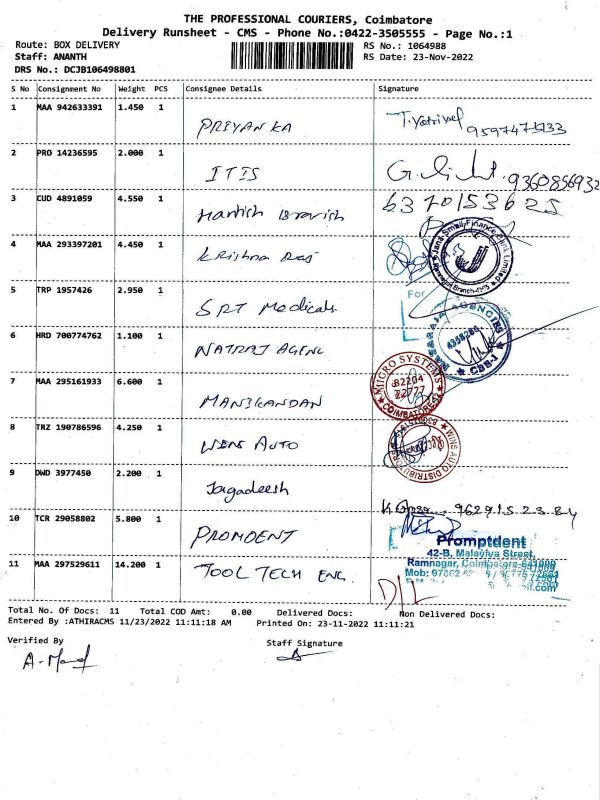 THE PROFESSIONAL COURIERS, Coimbatore
Delivery Runsheet - CMS - Phone No.:0422-3505555 - Page No.:1
Route: BOX DELIVERY
RS No.: 1064988
Staff: ANANTH
RS Date: 23-Nov-2022
DRS No.: DCJB106498801
S No Consignment No Weight PCS Consignee Details Signature
1 MAA 942633391 1.450 1 PRIYANKA
2 PRO 14236595 2.000 1 ITIS
3 CUD 4891059 4.550 1
4 MAA 293397201 4.450 1 Krishna Raj
5 TRP 1957426 2.950 1 SRT Medicals
6 HRD 700774762 1.100 1 NATRAJ AGENC
7 MAA 295161933 6.600 1 MANIKANDAN
8 TRZ 190786596 4.250 1 WINS AUTO
9 DWD 3977450 2.200 1 Jagadeesh
10 TCR 29058802 5.800 1 PROMDENT
11 MAA 297529611 14.200 1 TOOL TECH ENG.
9360856932
6370153625
Jana Small Finance Bank Limited
For
AGENCIES
CBE-1
MICRO SYSTEMS
COIMBATORE
WINS AUTO DISTRIBUTORS
Promptdent
42-B, Malaviya Street,
Ramnagar, Coimbatore-641009
Mob:
D/L
Total No. Of Docs: 11 Total COD Amt: 0.00 Delivered Docs: Non Delivered Docs:
Entered By :ATHIRACMS 11/23/2022 11:11:18 AM Printed On: 23-11-2022 11:11:21
Verified By Staff Signature